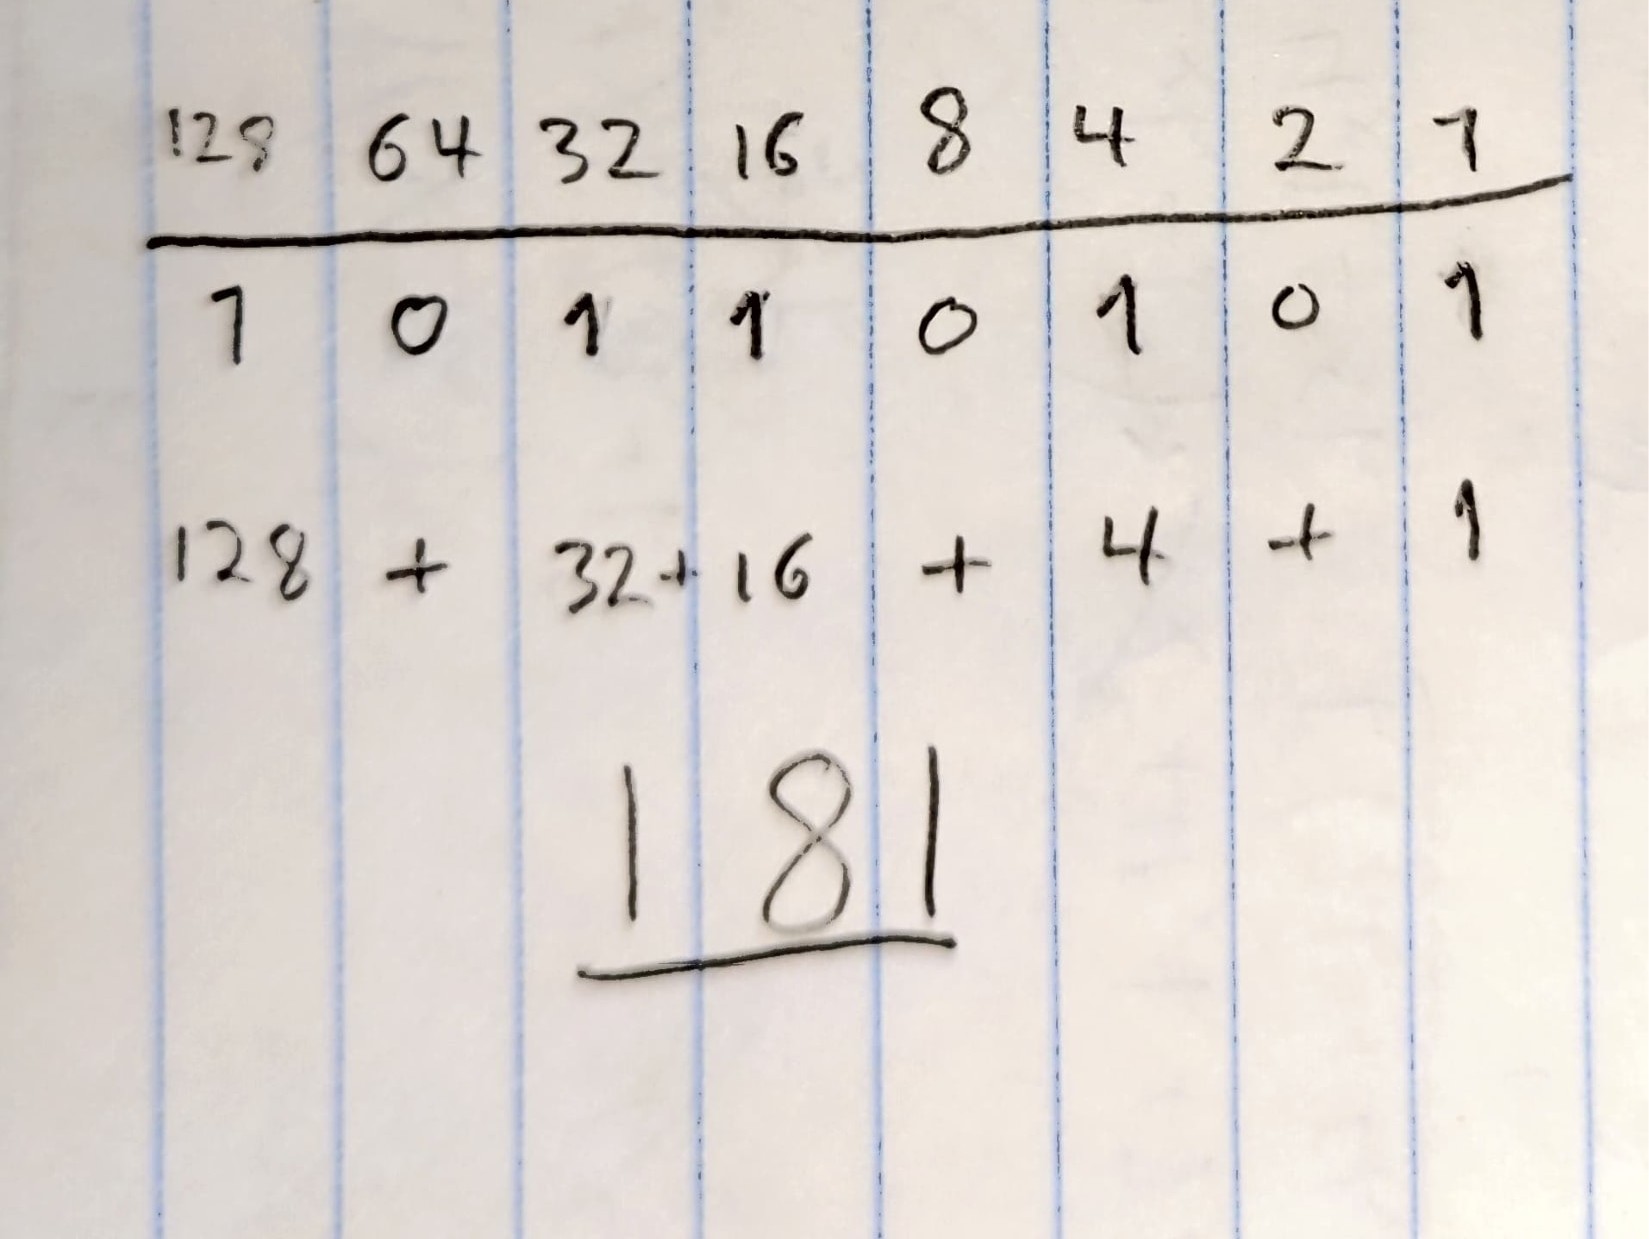 128 64 32 16 8 4 2 1
1 0 1 1 0 1 0 1
128 + 32 + 16 + 4 + 1
181